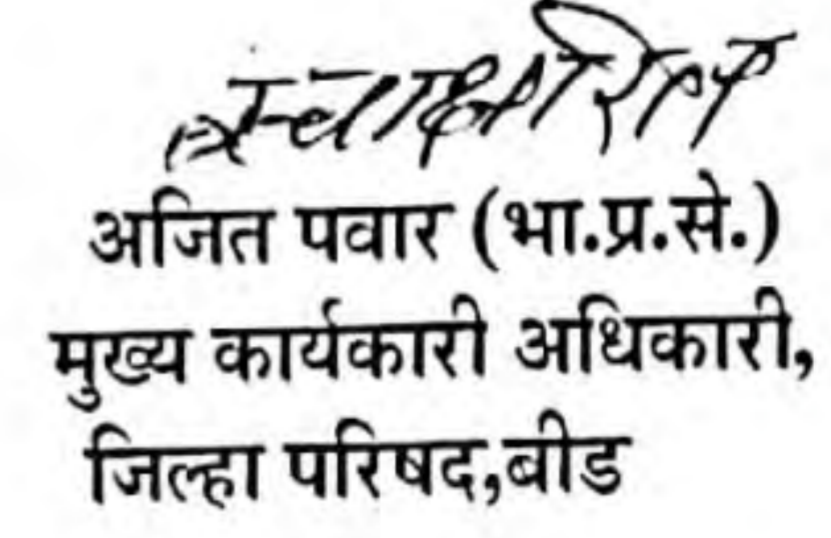 स्वाक्षरित
अजित पवार (भा.प्र.से.)
मुख्य कार्यकारी अधिकारी,
जिल्हा परिषद,बीड